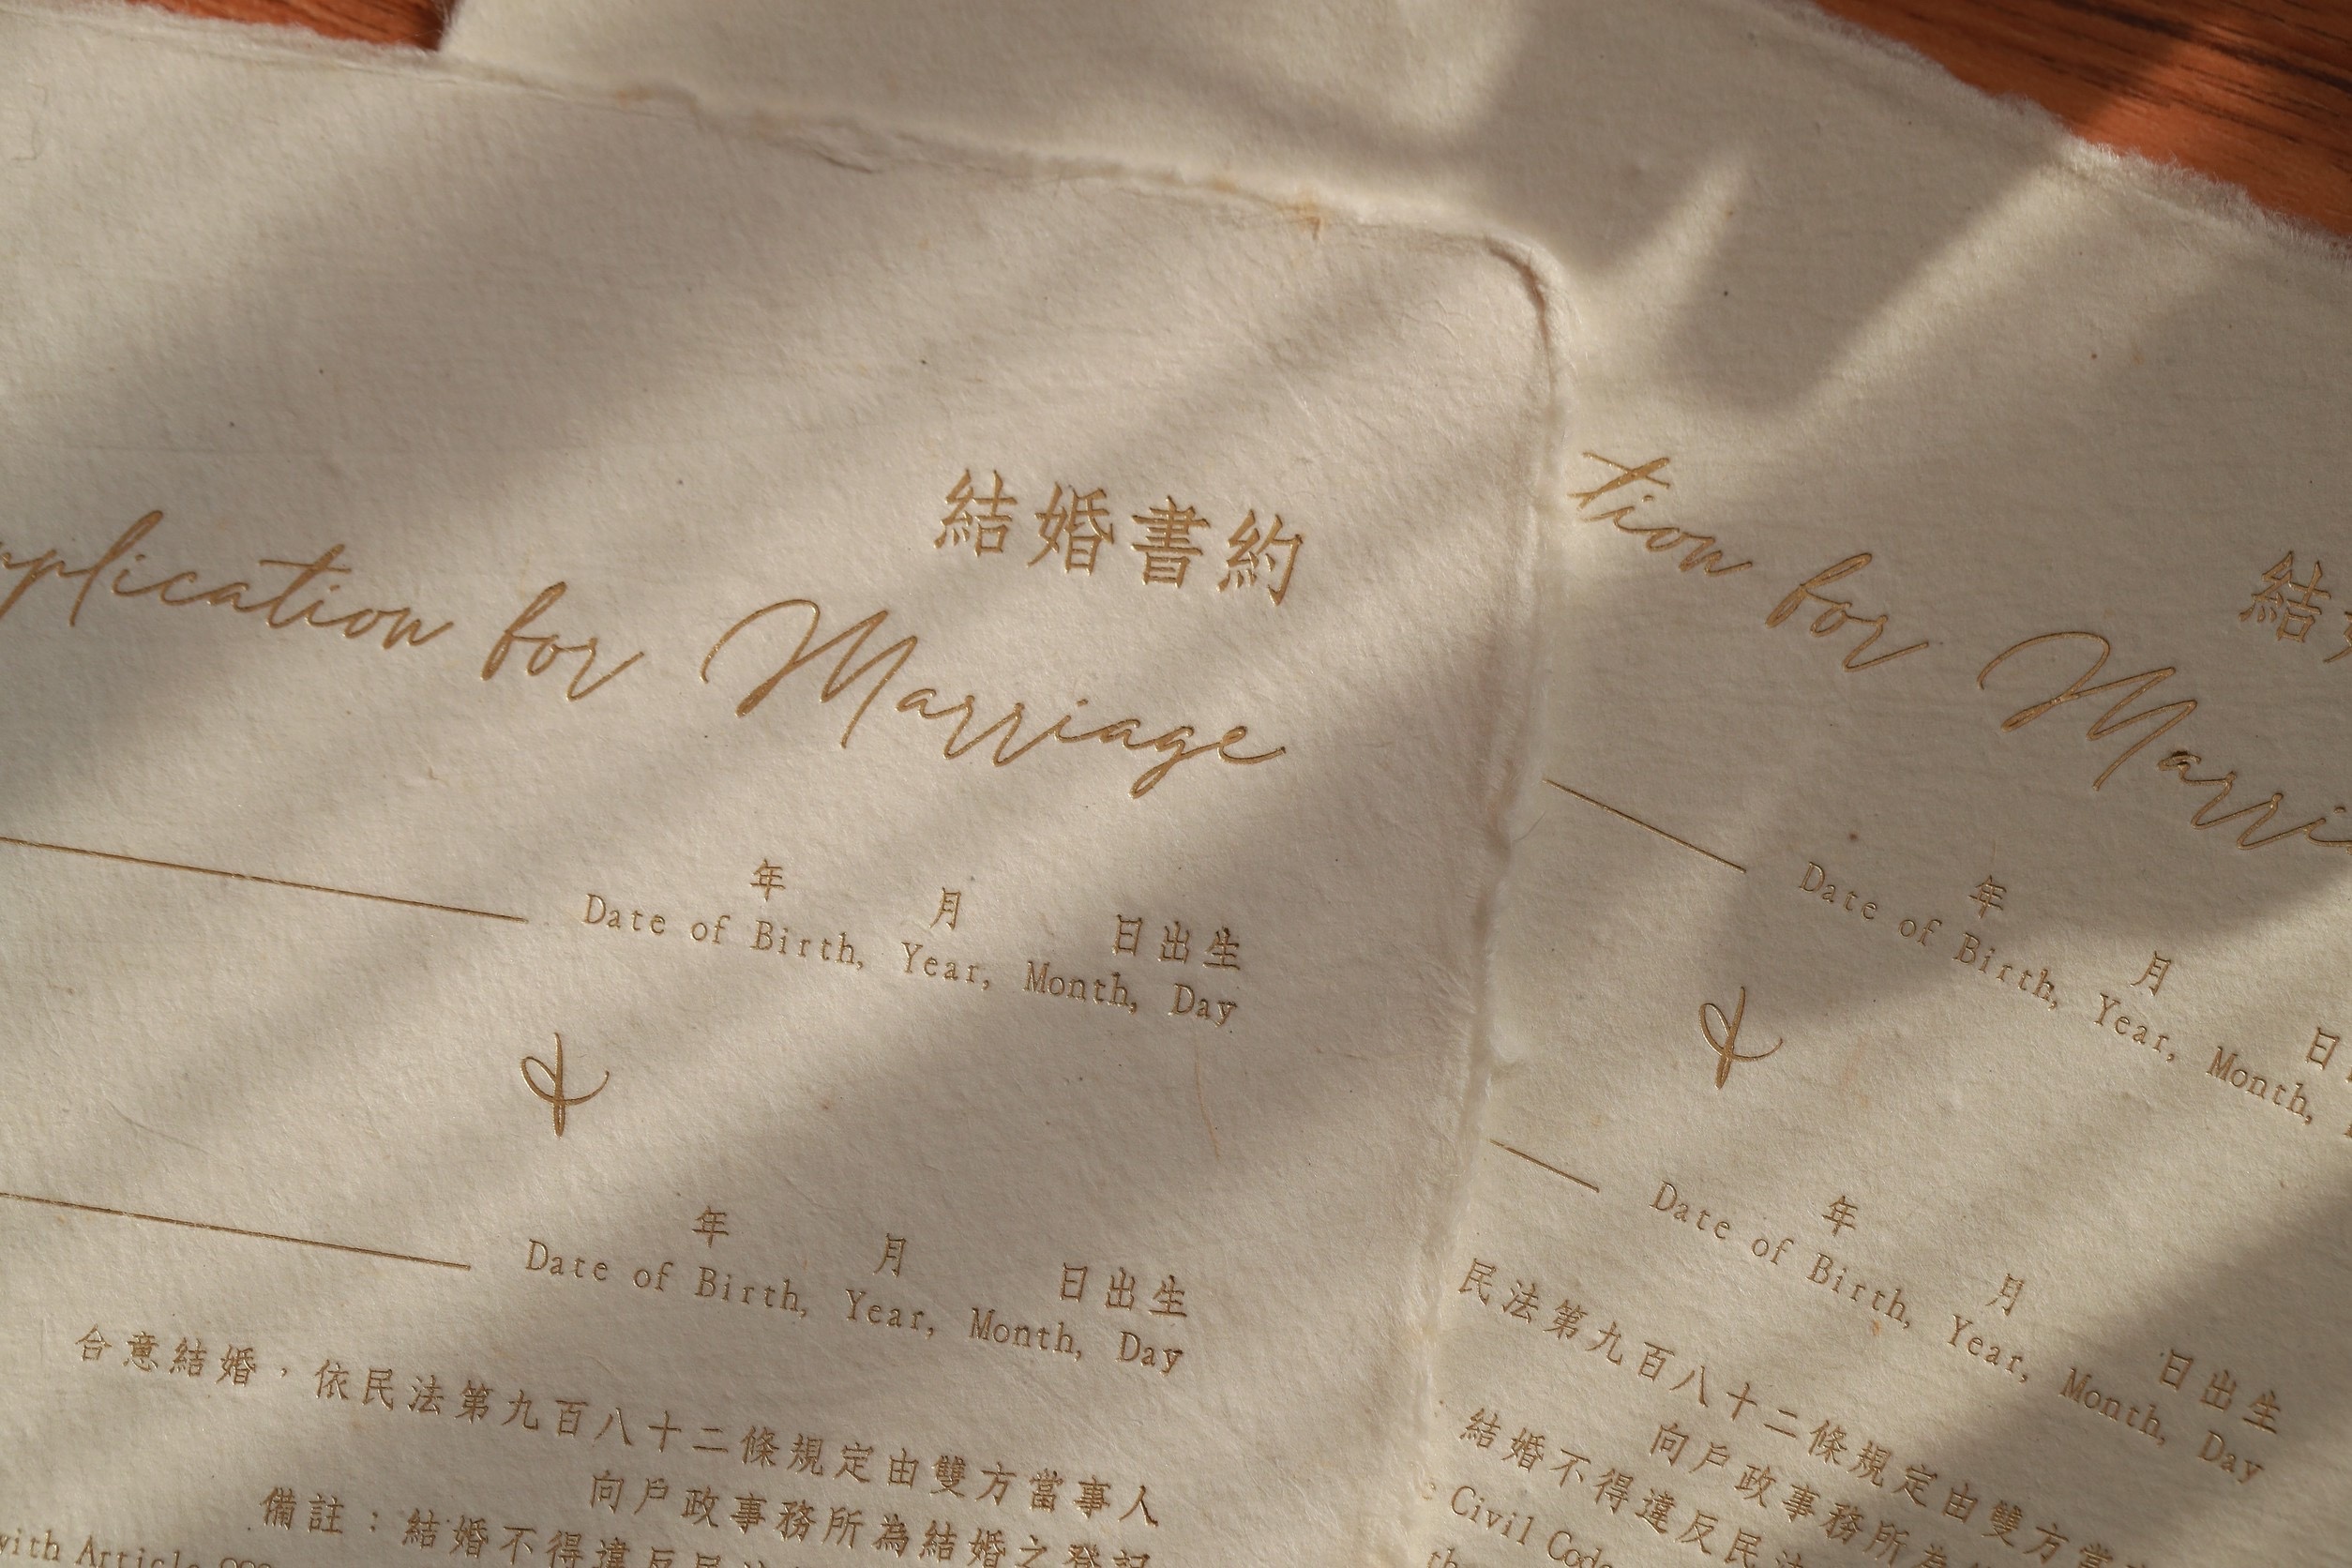 結婚書約
for Marriage
年 月 日出生
Date of Birth, Year, Month, Day
&
年 月 日出生
Date of Birth, Year, Month, Day
合意結婚，依民法第九百八十二條規定由雙方當事人
向戶政事務所為結婚之登記
備註：結婚不得違反民
with Article
結
for
年 月 日
Date of Birth, Year, Month,
&
年 月 日出生
Date of Birth, Year, Month, Day
民法第九百八十二條規定由雙方當
向戶政事務所為
結婚不得違反民法
Civil Code